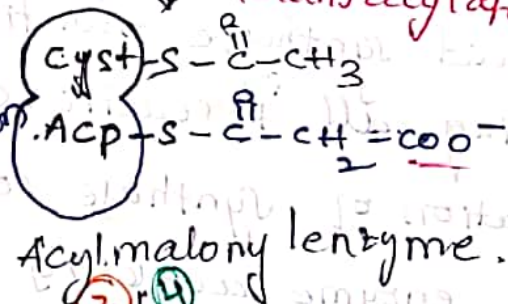 O
Cyst-S-C-CH3
O
ACP-S-C-CH2=COO-
Acyl.malonylenzyme.
4